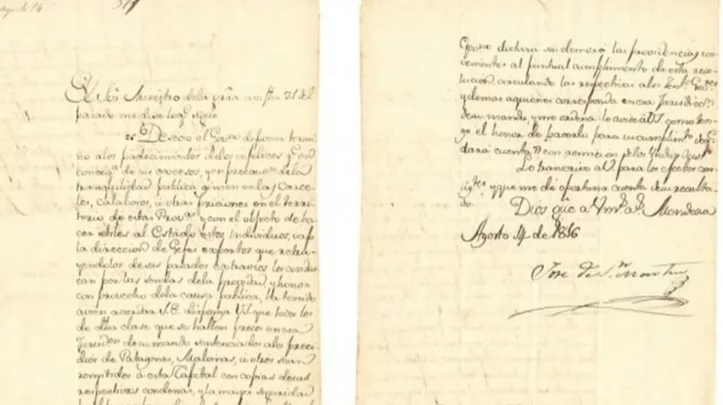 El Sōr Ministro dela grã con fha 31 del
pasado me dice loq.e sigue
Deseoso el Gov.no de poner termi
no alos padecimientos delos infelices q.e en
conseq.a de sus procesos, y en precaucion dela
tranquilidad publica gimen en las Carce
les, calabozos, ú otras priciones en el terri
torio de estas Prov.as y con el objeto de ha
cer utiles al Estado estos individuos, vajo
la direccion de Gefes expertos que retra
yendolos de sus pasados extravios los condus
can por las sendas dela probidad y honor
con provecho dela causa publica, ha tenido
acordar S.E. disponga VS. que todos los
de dha clase que se hallan presos en esa
Jurisdn. de su mando sentenciados alos presi
dios de Patagones, Malvinas, ú otros sean
remitidos a esta Capital con copias desus
respectivas condenas, y la mayor seguridad
dictara sin demora las providencias con
venientes al puntual cumplimiento de esta reso
lucion circulando las respectivas alos Ten.tes Gov.res
y demas aquienes corresponda en esa Jurisdic.n
desu mando, y me ordena lo avise aVS. como ten
go el honor de hacerlo para su cumplim.to
dará cuenta con remision delos
Lo transcribo aV. para los efectos con
sig.tes y que me dé oportuna cuenta desu resulta
do.
Dios gũe a V. m.s a.s Mendoza
Agosto 14 de 1816
Jose de S.n Martin